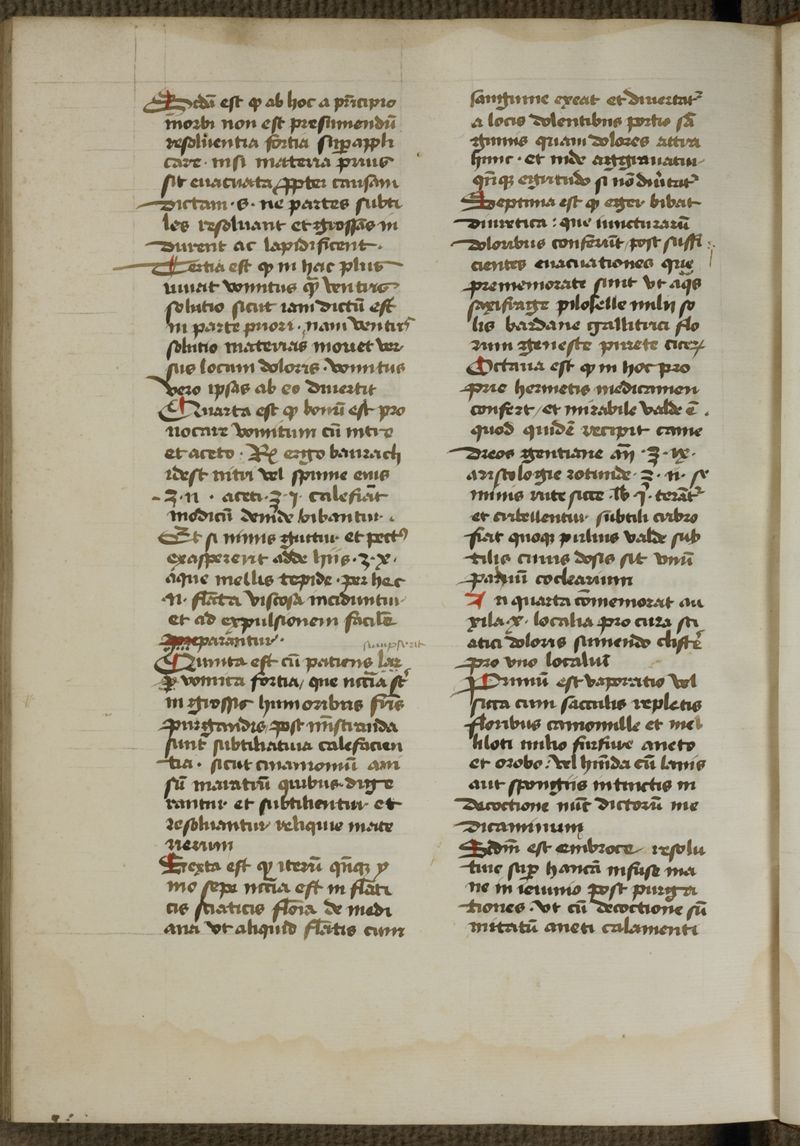 Sedm est ꝙ ab hoc a pñcipio
morbi non est presumendū
resoluentia fortia suꝑ appli
care · nisi materia prius
sit euacuata ꝓpter causam
dictam · s · ne partes subti
les resoluant et grossas in
durent ac lapidificent ·
Tertia est ꝙ in hac plus
iuuat vomitus ꝙ̄ ventris
solutio sicut iam dictū est
in parte priori · nam ventris
solutio materias mouet ver
sus locum doloris · vomitus
vero ipsas ab eo diuertit
Quarta est ꝙ bonū est pro
uocare vomitum cū nitro
et aceto · Rx ergo baurach
idest nitri vel spume eius
ʒ · ii · aceti · ʒ · j · calefiāt
modicū deinde bibantur ·
Et si nimis guttur et pectꝰ
exasperent adde hiis · ʒ · x ·
aque mellis tepide · per hec
.n. flāta viscosa inciduntur
et ad expulsionem facilē
preparantur ·
sumpserit
Quinta est cū patiens lar
ꝑ vomica fortia / que nccīa st̄
in grossis humoribus fr̄is
purgandis / post mīstranda
sunt subtiliatiua calefacien
tia · sicut cinamomū ani
sū maratrū quibus dige
rantur et subtilientur et
resoluantur reliquie mate
rierum
Sexta est ꝙ iterū qn̄qꝫ y
mo sepe nccīa est in flāti
cis sciaticis flōia de medi
ana vt aliquid flātis cum
sanguine exeat et diuertatᷣ
a locis dolentibus portio sā
guinis quam dolores attra
hunt · et inde aggrauatur
qn̄qꝫ egritudo si nō diu͛tatᷣ
Septima est ꝙ eger bibat
diuretica : que iuncturarū
doloribus conferūt / post suffi
cientes euacuationes que
prememorate sunt vt aq̄s
saxifrage pilofelle milij so
lis bardane gallitrici flo
rum geneste piretre cicerꝝ
Octaua est ꝙ in hoc pro
prie hermetis medicamen
confert / et mirabile valde ē ·
quod quidē recipit came
dreos gentiane añ · ʒ · ix ·
aristologie rotunde · ʒ · ii · se
minis rute sicce · lb · j · terātᷣ
et cribellentur subtili cribro
fiat quoqꝫ puluis valde sub
tilis cuius dosis sit vnū
paruū coclearium
In quarta cōmemorat au
xilia · x · localia pro cura sci
atici doloris sumendo clistē
pro vno localiū
Primū est vaporatio vel
sicca cum sacculis repletis
floribus camomille et mel
liloti milio furfure aneto
et orobo : vel hūida cū lanis
aut spongiis intinctis in
decoctione nūc dictorū me
dicaminum
Sedm̄ est embroce resolu
tiue suꝑ hancā infuse ma
ne in ieiunio post purga
tiones · vt cū decoctione sū
mitatū aneti calamenti